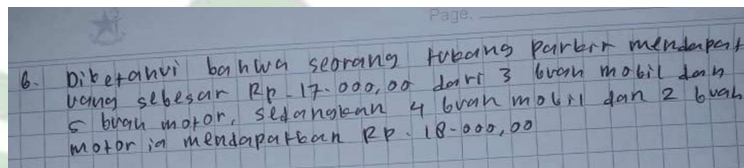 Page.
6. Diketahui bahwa seorang tukang parkir mendapat
uang sebesar Rp. 17.000,00 dari 3 buah mobil dan
5 buah motor, sedangkan 4 buah mobil dan 2 buah
motor ia mendapatkan Rp. 18.000,00